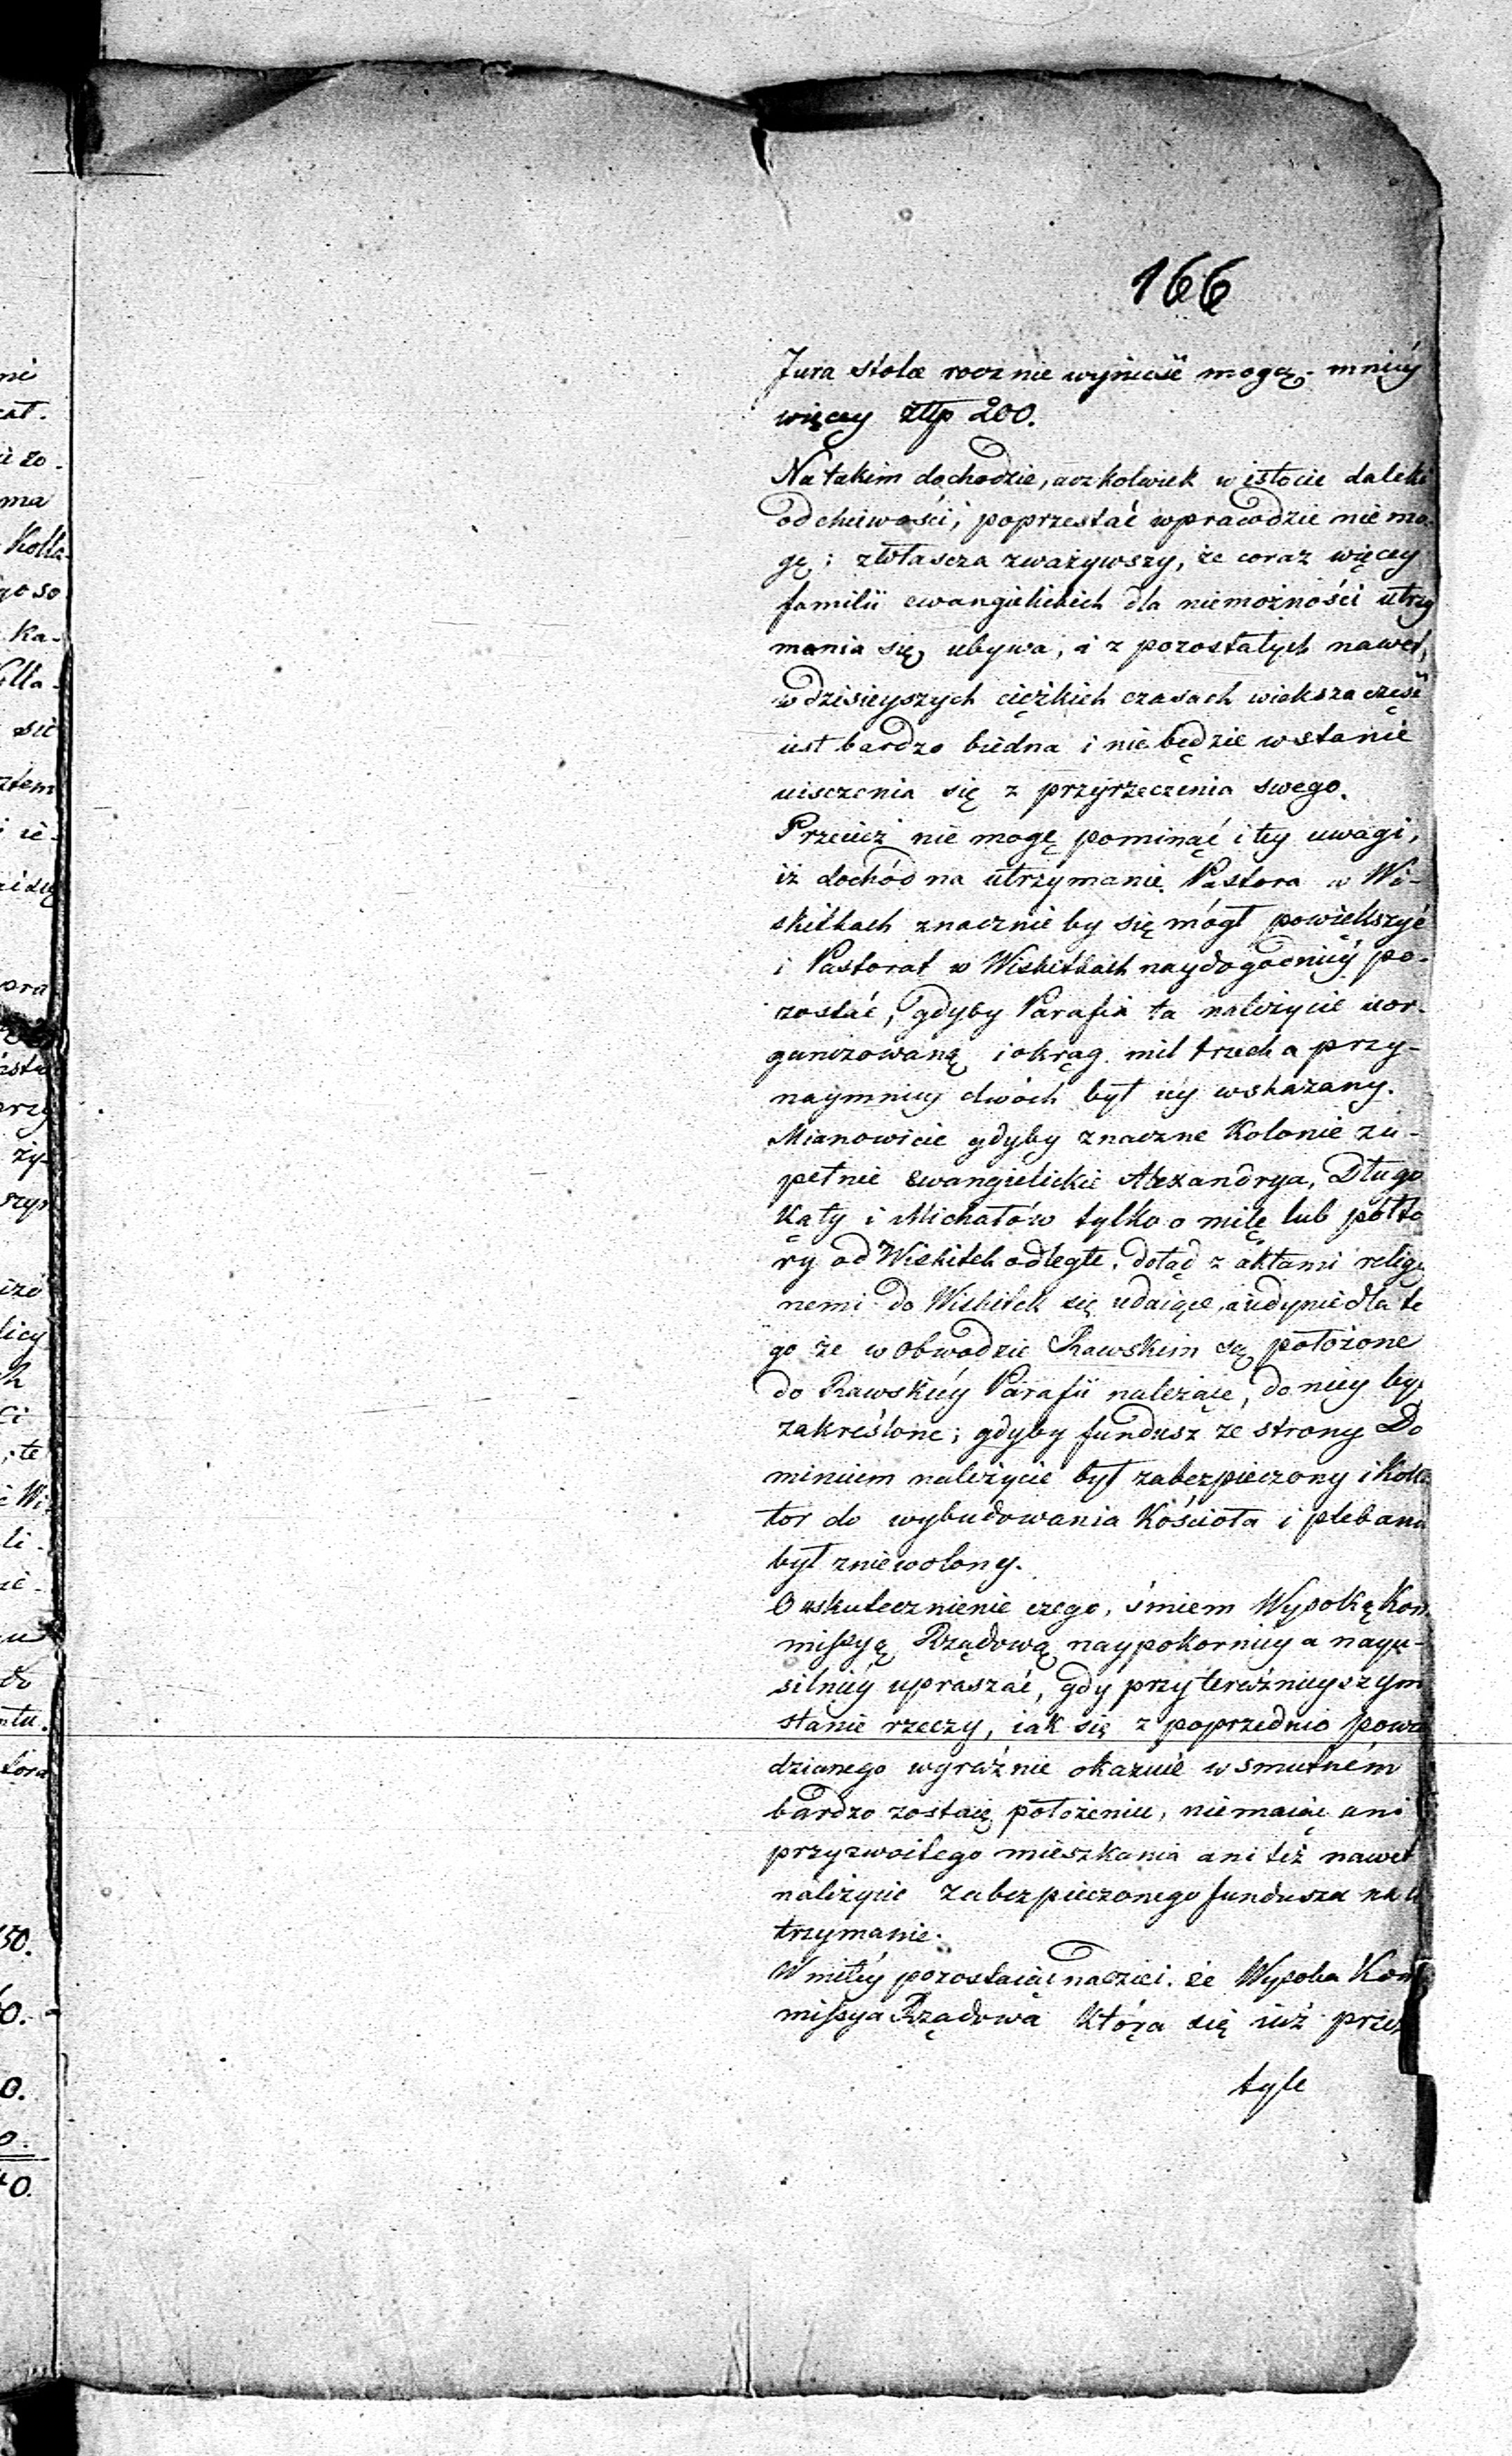 166
Jura stolæ rocznie wynieść mogą mniéy
więcey złtp 200.
Na takim dochodzie, aczkolwiek w istocie daleki
od chciwości, poprzestać wprawdzie nie mo-
gę; zwłascza zważywszy, że coraz więcey
familii ewangielickich dla niemożności utrzy
mania się, ubywa, i z pozostałych nawet,
w dzisieyszych ciężkich czasach większa część
iest bardzo biedna i nie będzie w stanie
uisczenia się z przyrzeczenia swego.
Przecież nie mogę pominąć i tey uwagi,
iż dochód na utrzymanie Pastora w Wi-
skitkach znacznie by się mógł powiększyć
i Pastorat w Wiskitkach naydogodniéy po-
zostać, gdyby Parafia ta należycie uor-
ganizowaną i okrąg mil trzech a przy-
naymniey dwóch był iéy wskazany.
Mianowicie gdyby znaczne Kolonie zu-
pełnie Ewangielickie Alexandrya, Długo
Kąty i Michałów tylko o milę lub półto
ry od Wiskitek odległe, dotąd z aktami religy
nemi do Wiskitek się udaiące, a iedynie dla te
go że w obwodzie Rawskim są położone
do Rawskiéy Parafii należące, do niey by
zakreślone; gdyby fundusz ze strony Do
minium należycie był zabezpieczony i Kolla
tor do wybudowania Kościoła i pleban
był zniewolony.
O uskutecznienie czego, śmiem Wysoką Kom
missyą Rządową naypokorniey a nayu-
silniéy upraszać, gdy przy teraźnieyszym
stanie rzeczy, iak się z poprzednio powie
dzianego wyraźnie okazuie w smutném
bardzo zostaię położeniu, nie maiąc ani
przyzwoitego mieszkania ani też nawet
należycie zabezpieczonego fundusza na u
trzymanie.
W miłéy pozostaiąc nadziei, że Wysoka Kom
missya Rządowa która się iuż przez
tyle